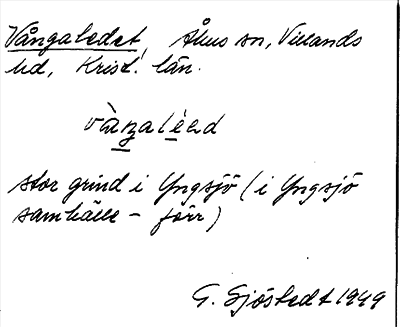 Vångaledet, Åhus sn, Villands
hd, Krist. län.
vàŋaléəd
stor grind i Yngsjö (i Yngsjö
samhälle - förr)
G. Sjöstedt 1949